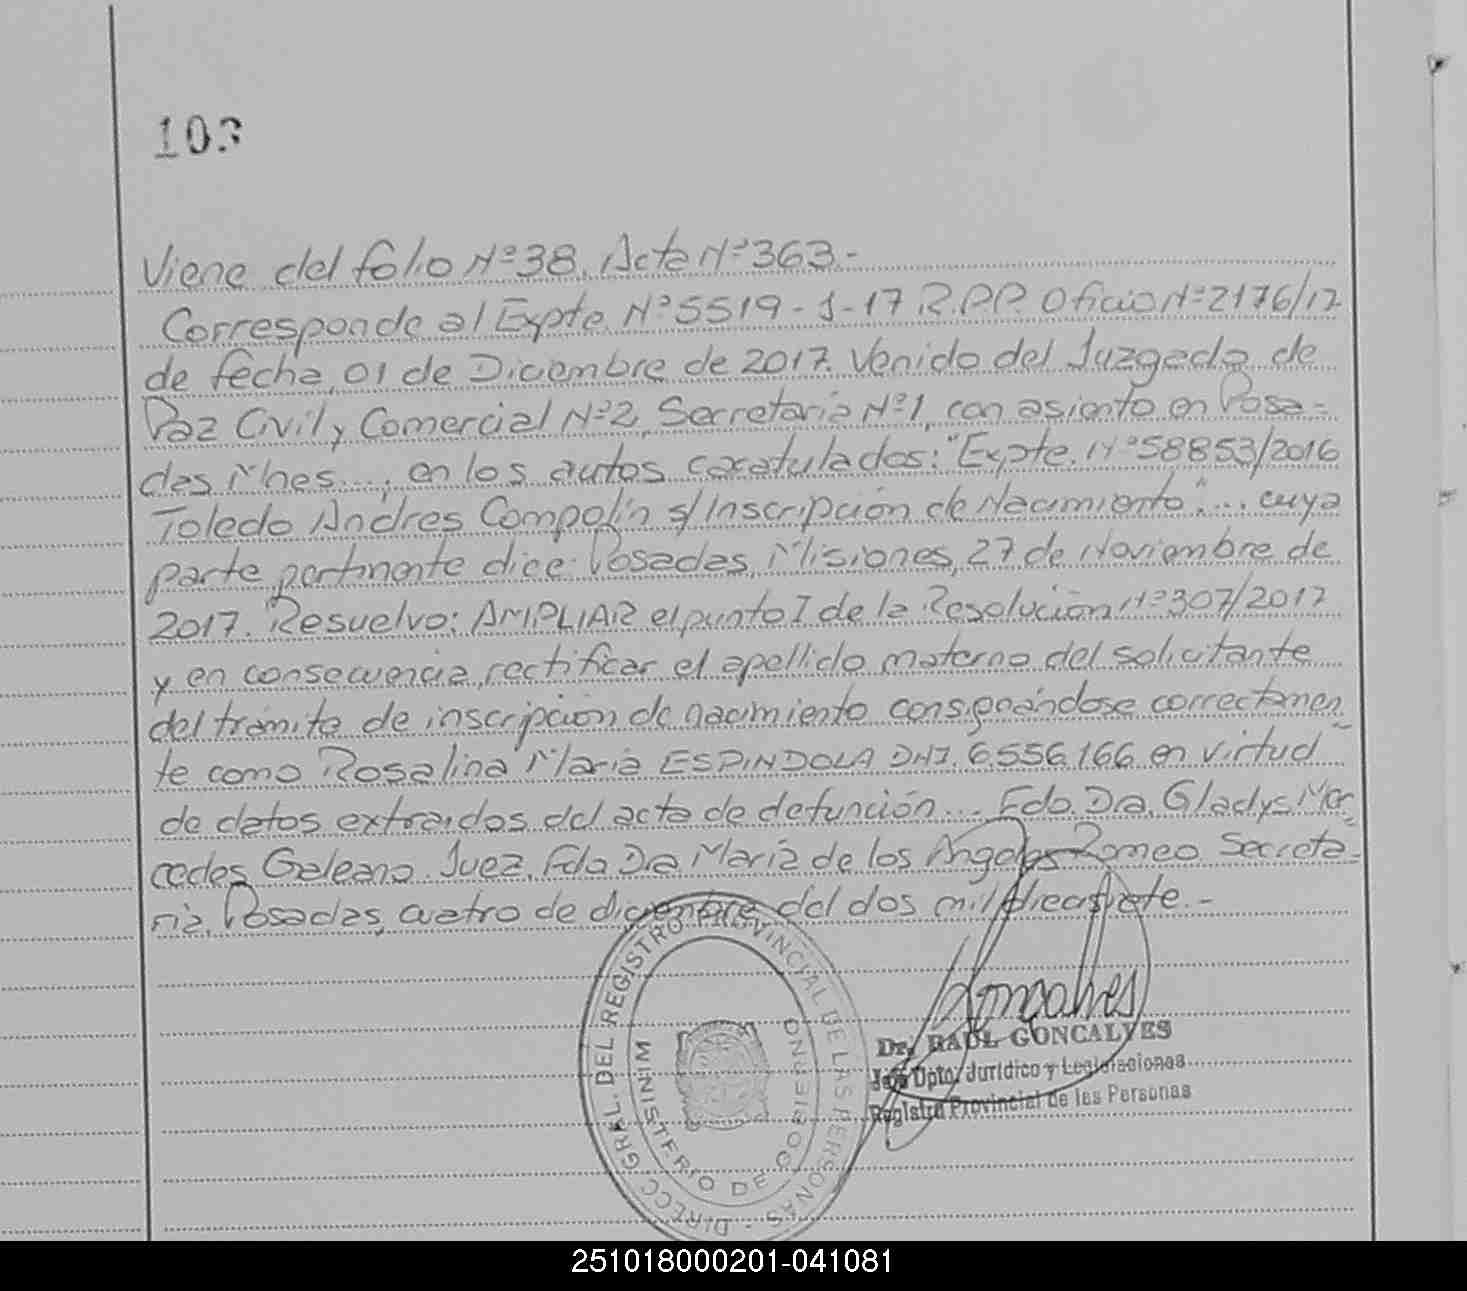 103
Viene del folio Nº 38. Acta Nº 363.-
Corresponde al Expte. Nº 5519-J-17 R.P.P. Oficio Nº 2176/17
de fecha 01 de Diciembre de 2017. Venido del Juzgado de
Paz Civil y Comercial Nº 2, Secretaria Nº 1, con asiento en Posa-
das Mnes..., en los autos caratulados: "Expte. Nº 58853/2016
Toledo Andres Compolin s/Inscripción de Nacimiento"... cuya
parte pertinente dice: Posadas, Misiones, 27 de Noviembre de
2017. Resuelvo: AMPLIAR el punto I de la Resolución Nº 307/2017
y en consecuencia, rectificar el apellido materno del solicitante
del trámite de inscripción de nacimiento consignándose correctamen
te como Rosalina Maria ESPINDOLA DNI. 6.556.166 en virtud
de datos extraidos del acta de defunción... Fdo. Dra. Gladys Mer
cedes Galeano. Juez. Fdo Dra Maria de los Angeles Romeo. Secreta-
ria. Posadas, cuatro de diciembre del dos mil diecisiete.-
DIRECC. GRAL. DEL REGISTRO PROVINCIAL DE LAS PERSONAS
MINISTERIO DE GOBIERNO
Goncalves
Dr. RAUL GONCALVES
Jefe Dpto. Jurídico y Legislaciones
Registro Provincial de las Personas
251018000201-041081